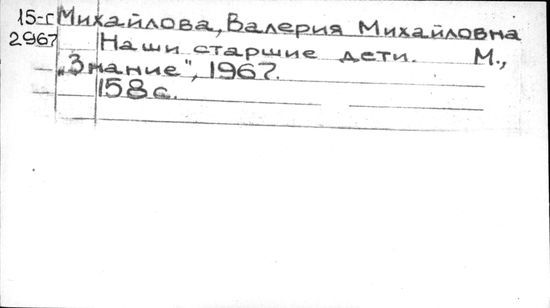 15-г Михайлова, Валерия Михайловна
2967 Наши старшие дети. М.,
„Знание", 1967.
158 с.